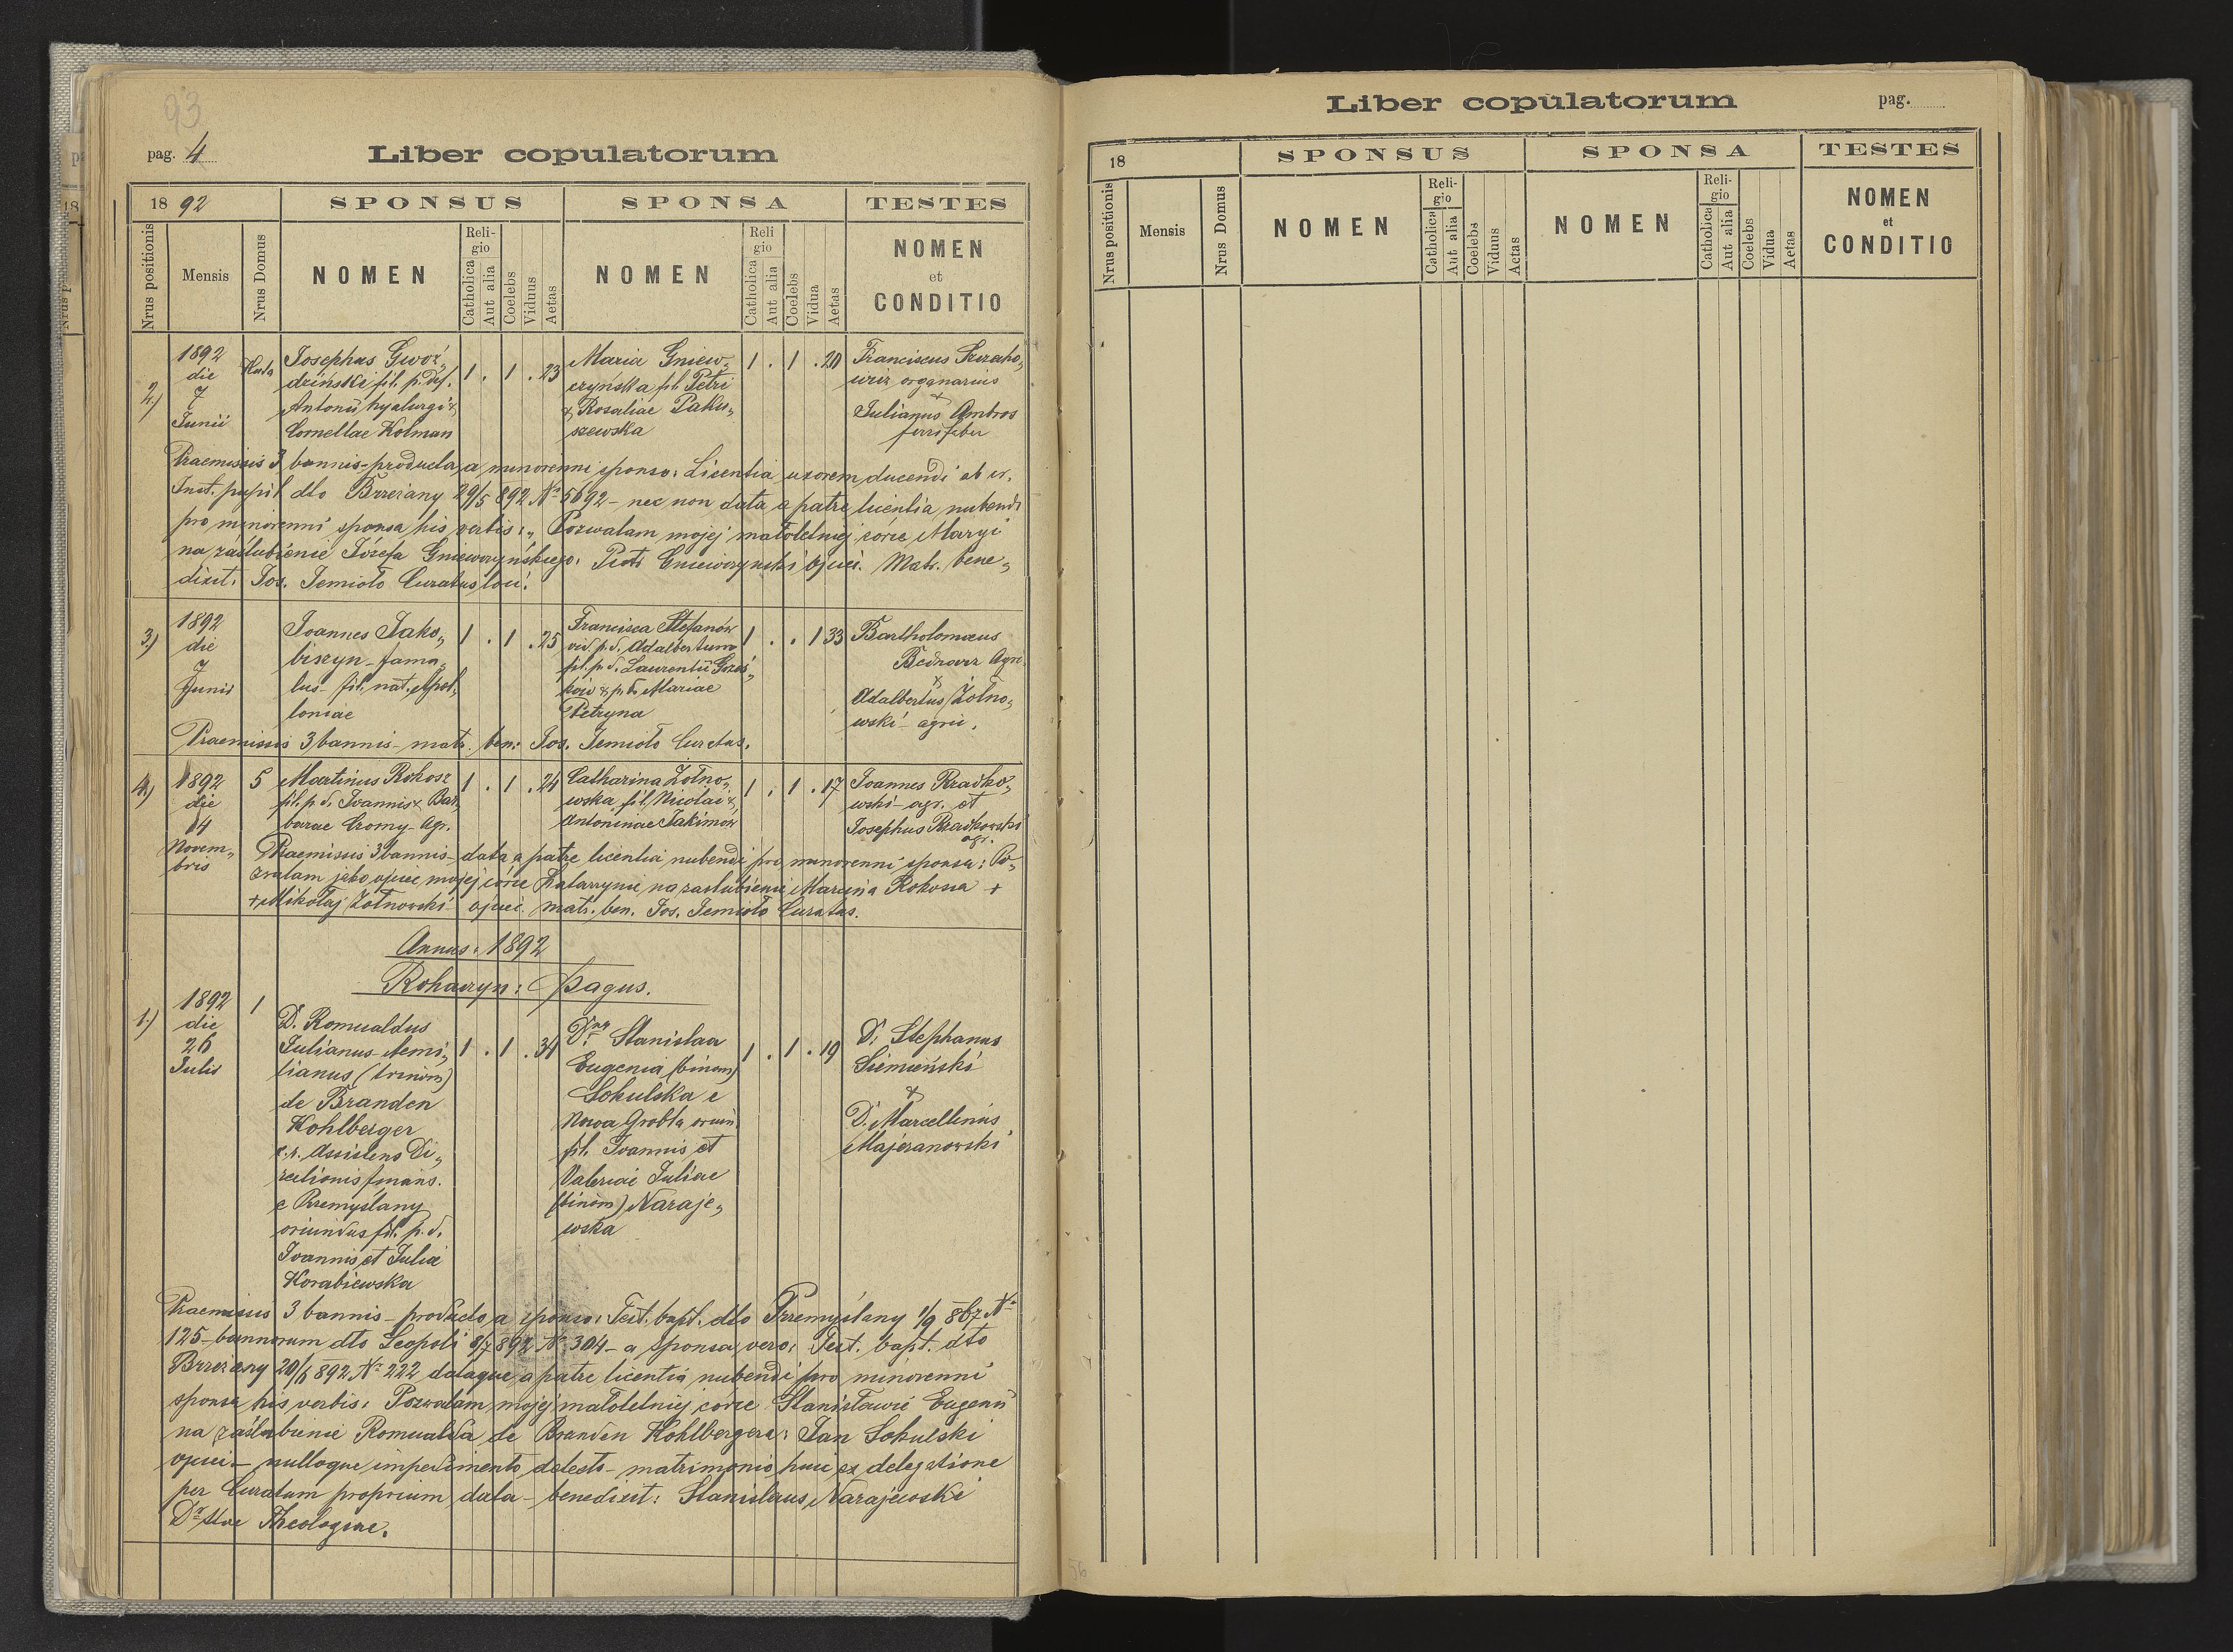 93
pag. 4
Liber copulatorum
18 92
SPONSUS
SPONSA
TESTES
Nrus positionis
Mensis
Nrus Domus
NOMEN
Religio
Catholica
Aut alia
Coelebs
Viduus
Aetas
NOMEN
Religio
Catholica
Aut alia
Coelebs
Vidua
Aetas
NOMEN
et
CONDITIO
2.)
1892
die
7
Junii
Huta
Josephus Gwoź„
dziński fil. p. def.
Antonii hyalurgi &
Cornellae Kolman
1 . 1 . 23
Maria Gniew„
czyńska fil. Petri
& Rosaliae Paku„
szewska
1 . 1 . 20
Franciscus
organarius
&
Julianus Ambros
ferrifaber
Praemissis 3 bannis - producta a minorenni sponso: Licentia uxorem ducendi ab
Inst. pupil dto Brzeżany 29/5 892 No 5692 - nec non data a patre licentia nubendi
pro minorenni sponsa his verbis: „Pozwalam mojej małoletniej córce Maryi
na zaślubienie Józefa Gniewczyńskiego: Piotr Gniewczyński ojciec. Matr. bene„
dixit: Jos. Jemioło Curatus loci.
3.)
1892
die
7
Junii
Joannes Jako„
biszyn - famu„
lus - fil. nat. Apol„
loniae
1 . 1 . 25
Francisca Stefanów
vid. p. d. Adalbertum
fil. p. d. Laurentii
& p. d. Mariae
Petryna
1 . . 1 33
Bartholomaeus
Bednarz Agri.
&
Adalbertus Żołno„
wski - agric.
Praemissis 3 bannis - matr. ben: Jos. Jemioło Curatus.
4.)
1892
die
14
Novem„
bris
5
Martinus Rokosz
fil. p. d. Joannis & Bar„
barae Cromy - Agr.
1 . 1 . 24
Catharina Żołno„
wska fil. Nicolai &
Antoninae Jakimów
1 . 1 . 17
Joannes Rzadko„
wski - agr. et
Josephus Rzadkowski
agr.
Praemissis 3 bannis - data a patre licentia nubendi pro minorenni sponsa: Po„
zwalam jako ojciec mojej córce Katarzynie na zaślubienie Marcina Rokosza +
+ Mikołaj Żołnowski - ojciec. matr. ben. Jos. Jemioło Curatus.
Annus: 1892
Rohaczyn: pagus.
1.)
1892
die
26
Julii
1
D. Romualdus
Julianus Aemi„
lianus (trinom)
de Branden
Kohlberger
c. r. Assistens Di„
rectionis finans.
e Przemyślany
oriundus fil. p. d.
Joannis et Julia
Korabiewska
1 . 1 . 34
Dna Stanislaa
Eugenia (binom)
Sokulska e
Nowa Grobla oriun.
fil. Joannis et
Valeriae Juliae
(binom) Naraje„
wska
1 . 1 . 19
D. Stephanus
Siemieński
&
D. Marcellinus
Majeranowski
Praemissis 3 bannis - producto a sponso: Test. bapt. dto Przemyślany 1/9 867 No
125 - bannorum dto Leopoli 8/7 892 No 304 - a sponsa vero: Test. bapt. dto
Brzeżany 20/6 892 No 222 dataque a patre licentia nubendi pro minorenni
sponsa his verbis: Pozwalam mojej małoletniej córce Stanisławie Eugenii
na zaślubienie Romualda de Branden Kohlbergera: Jan Sokulski
ojciec - nulloque impedimento detecto - matrimonio huic ex delegatione
per Curatum proprium data - benedixit: Stanislaus Narajewski
Dr Stae Theologiae.
Liber copulatorum
pag.
18
SPONSUS
SPONSA
TESTES
Nrus positionis
Mensis
Nrus Domus
NOMEN
Religio
Catholica
Aut alia
Coelebs
Viduus
Aetas
NOMEN
Religio
Catholica
Aut alia
Coelebs
Vidua
Aetas
NOMEN
et
CONDITIO
56